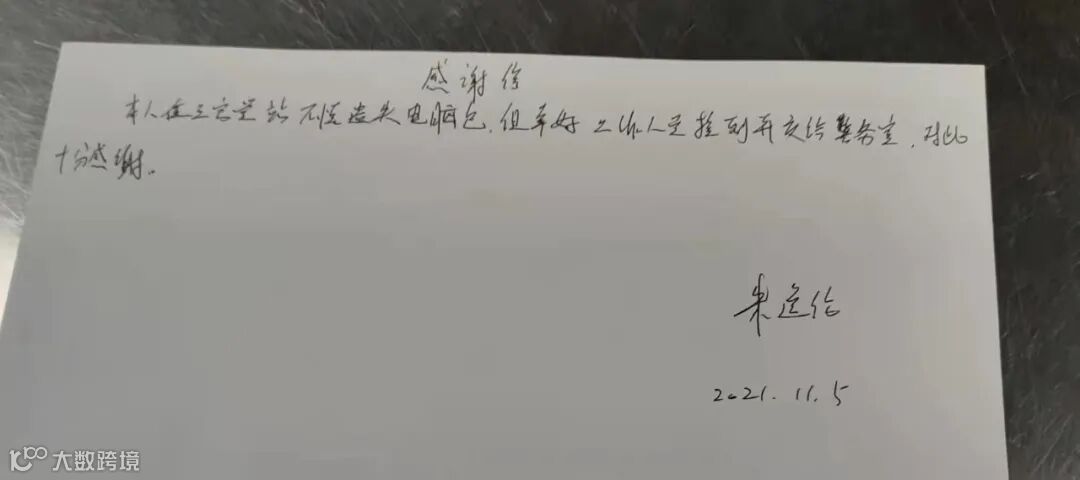 感谢信
本人在三官堂站不慎遗失电脑包,但幸好工作人员捡到并交给警务室,对此
十分感谢。
2021.11.5
大数跨境